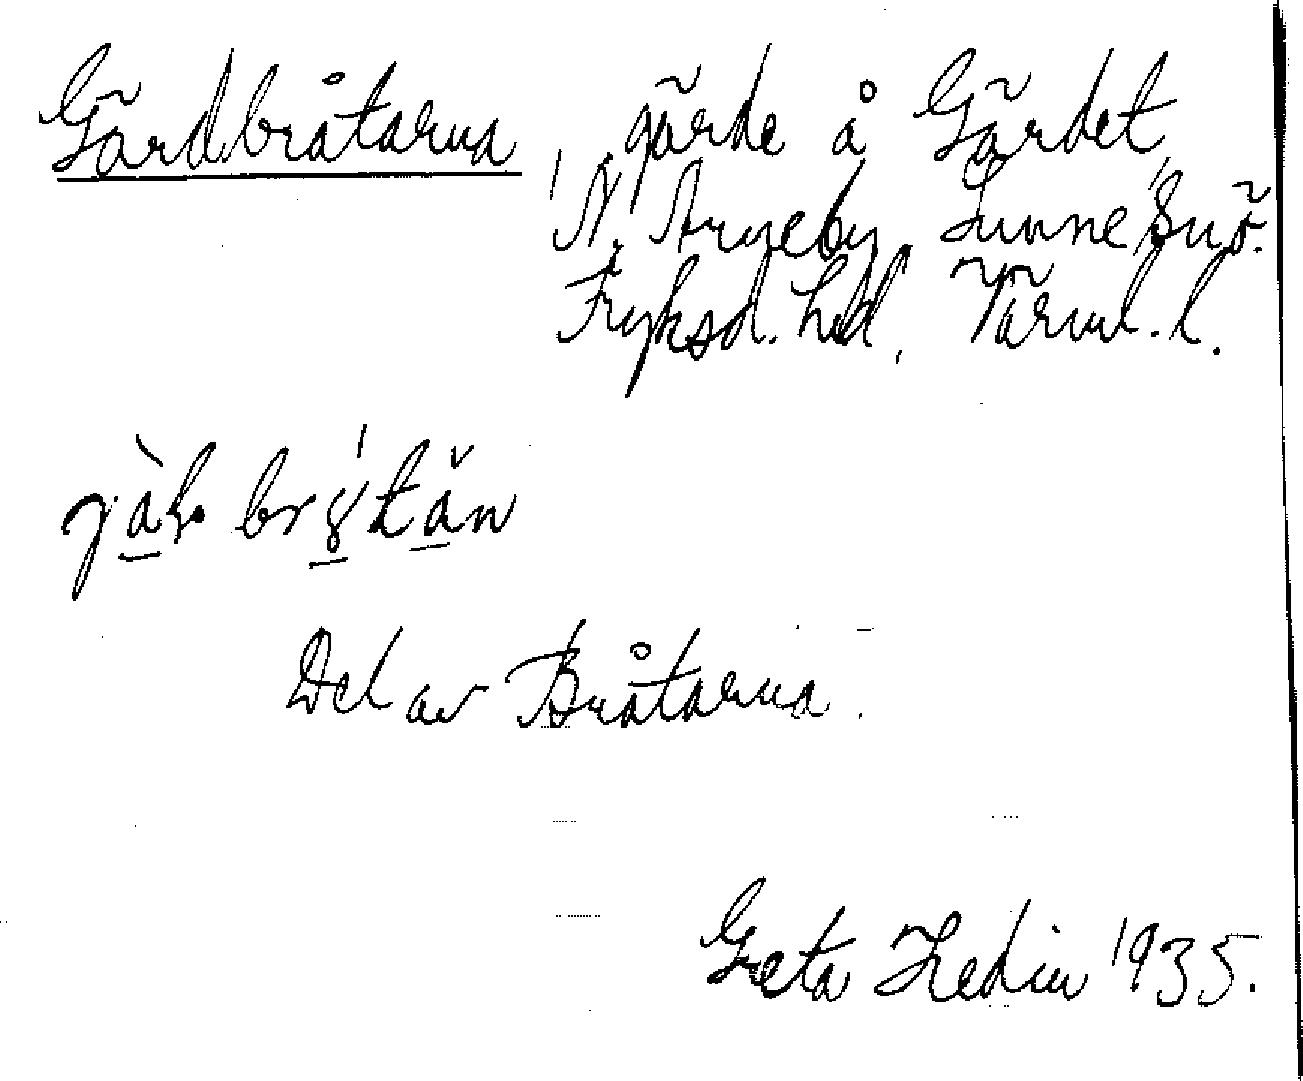 Gärdbråtarna, gärde å Gärdet,
N. Aryeby, Sunne snö.
Fryksd. hd, Värml. l.
Del av Bråtarna.
Greta Hedin 1935.